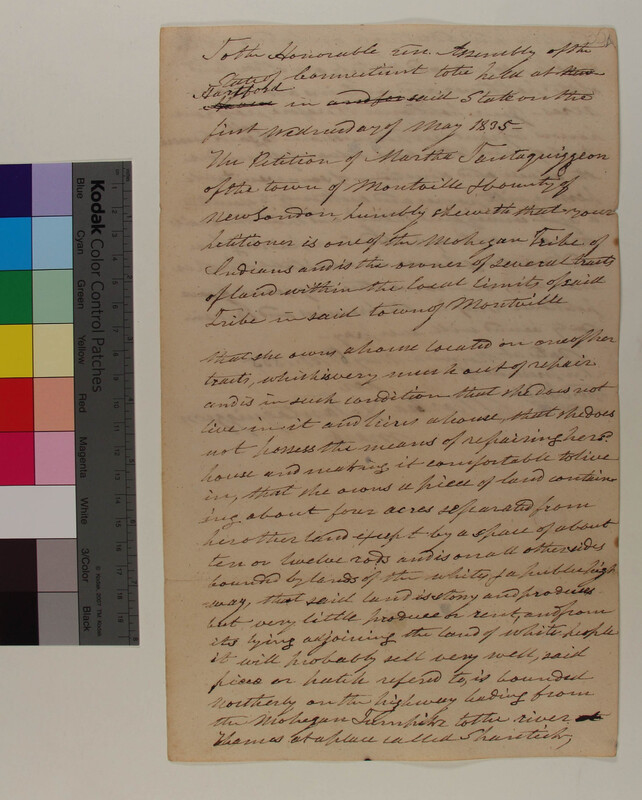 To the Honorable Gen. Assembly of the
State of Connecticut to be held at
Hartford
in said State on the
first Wednesday of May 1835—
The Petition of Martha Tantaquiggeon
of the town of Montville & County of
New London, humbly sheweth that your
petitioner is one of the Mohegan Tribe of
Indians and is the owner of several tracts
of land within the local limits of said
Tribe in said town of Montville
that she owns a house located on one of her
tracts, which is very much out of repair
and is in such condition that she does not
live in it and hires a house, that she does
not possess the means of repairing her
house and making it comfortable to live
in, that she owns a piece of land contain
ing about four acres separated from
her other land except by a space of about
ten or twelve rods and is on all other sides
bounded by lands of the whites, & a public high
way, that said land is stony and produces
but very little produce or rent, and from
its lying adjoining the land of white people
it will probably sell very well, said
piece or patch refered to, is bounded
northerly on the highway leading from
the Mohegan Turnpike to the river
Thames at a place called Shantick,
Kodak Color Control Patches
Blue
Cyan
Green
Yellow
Red
Magenta
White
3/Color
Black